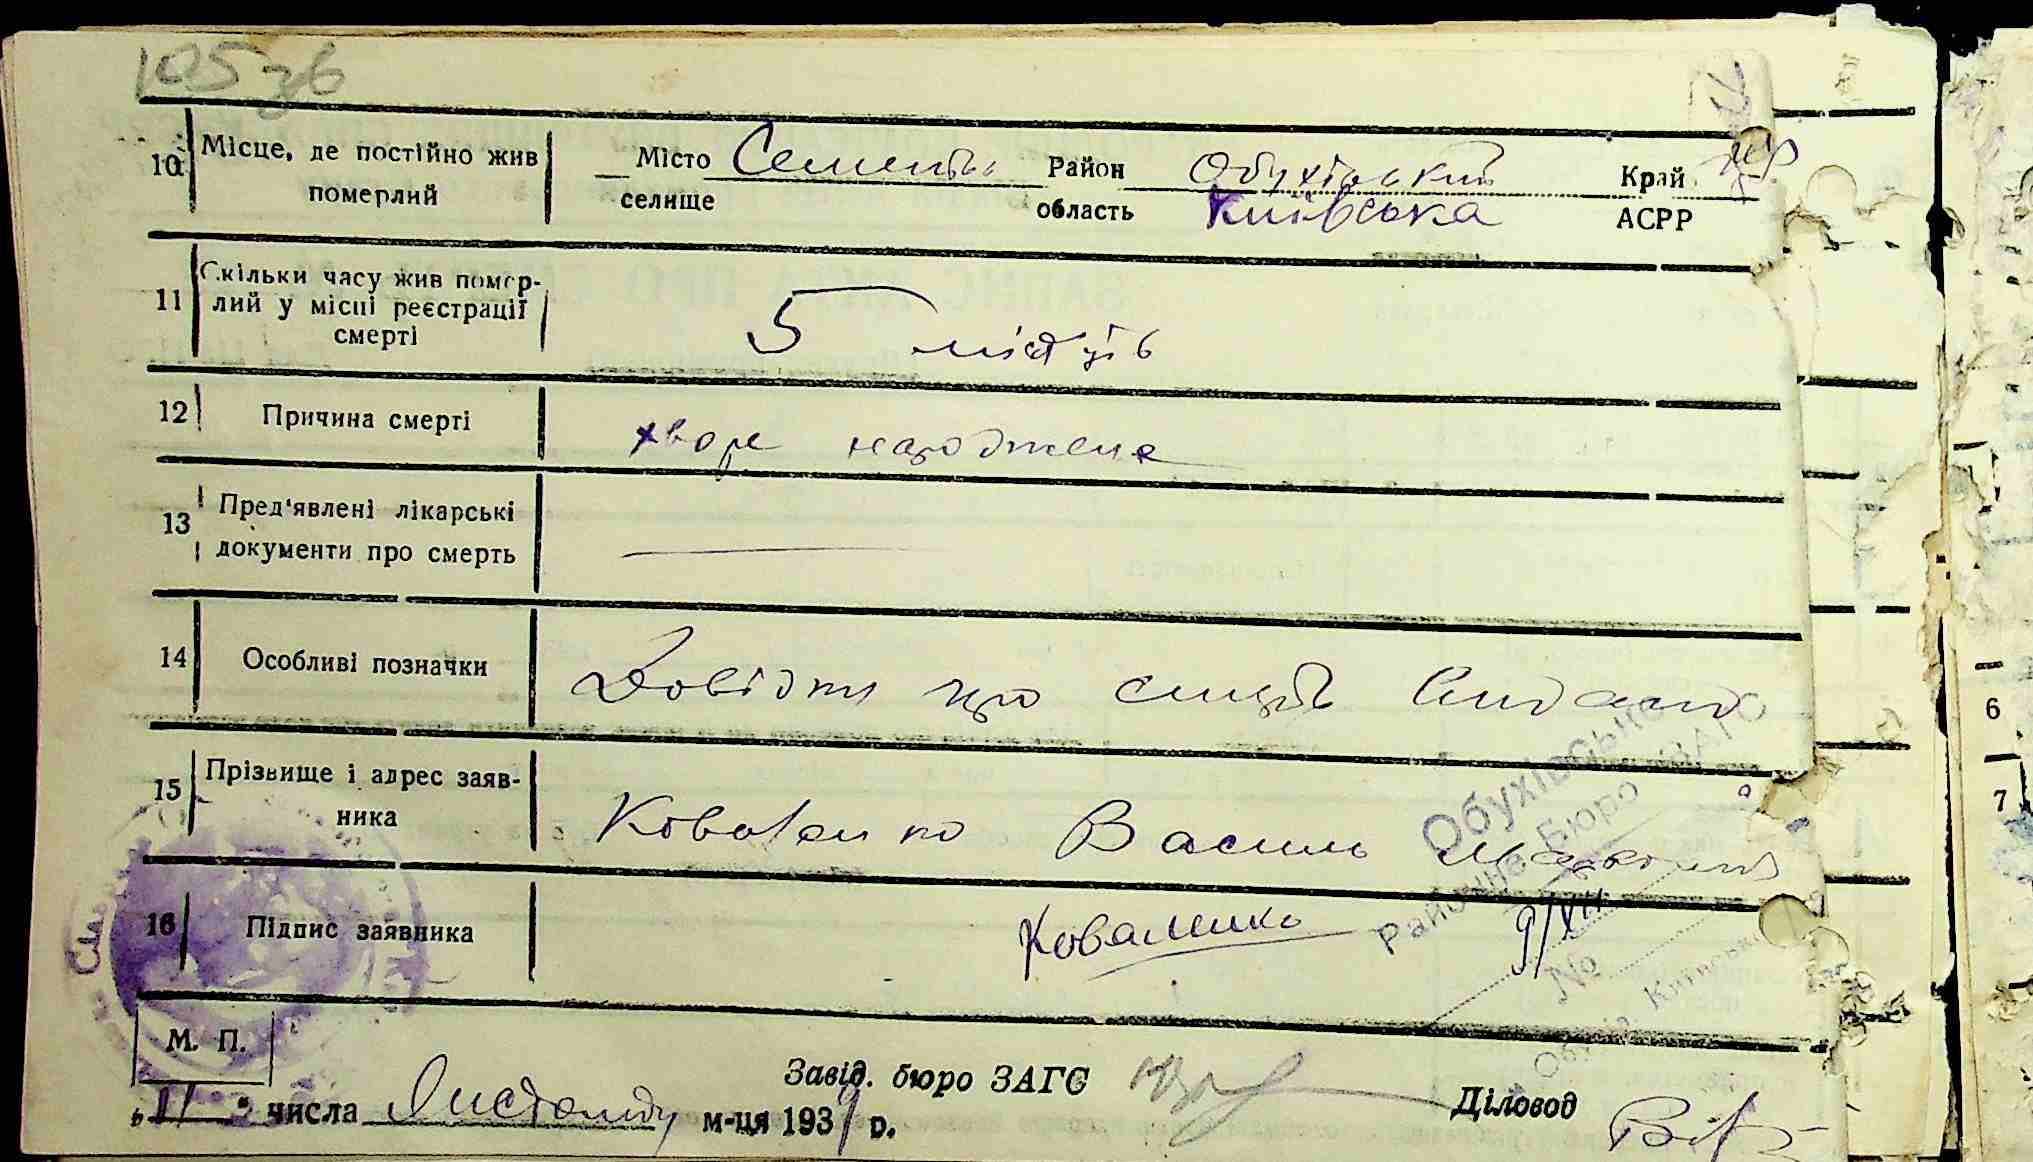 105зв
10 Місце, де постійно жив померлий
Місто Семенівка Район Обухівський Край
селище область Київська АСРР
11 Скільки часу жив помер-
лий у місці реєстрації
смерті
5 місяців
12 Причина смерті хворе народжене
13 Пред'явлені лікарські
документи про смерть
14 Особливі позначки Довідку про смерть видано
15 Прізвище і адрес заяв-
ника
Коваленко Василь
16 Підпис заявника Коваленко 9/XII
Обухівське
Районне Бюро ЗАГС
№
Київськ
М. П.
Завід. бюро ЗАГС
Діловод
„11" числа Листопаду м-ця 193 р.
6
7